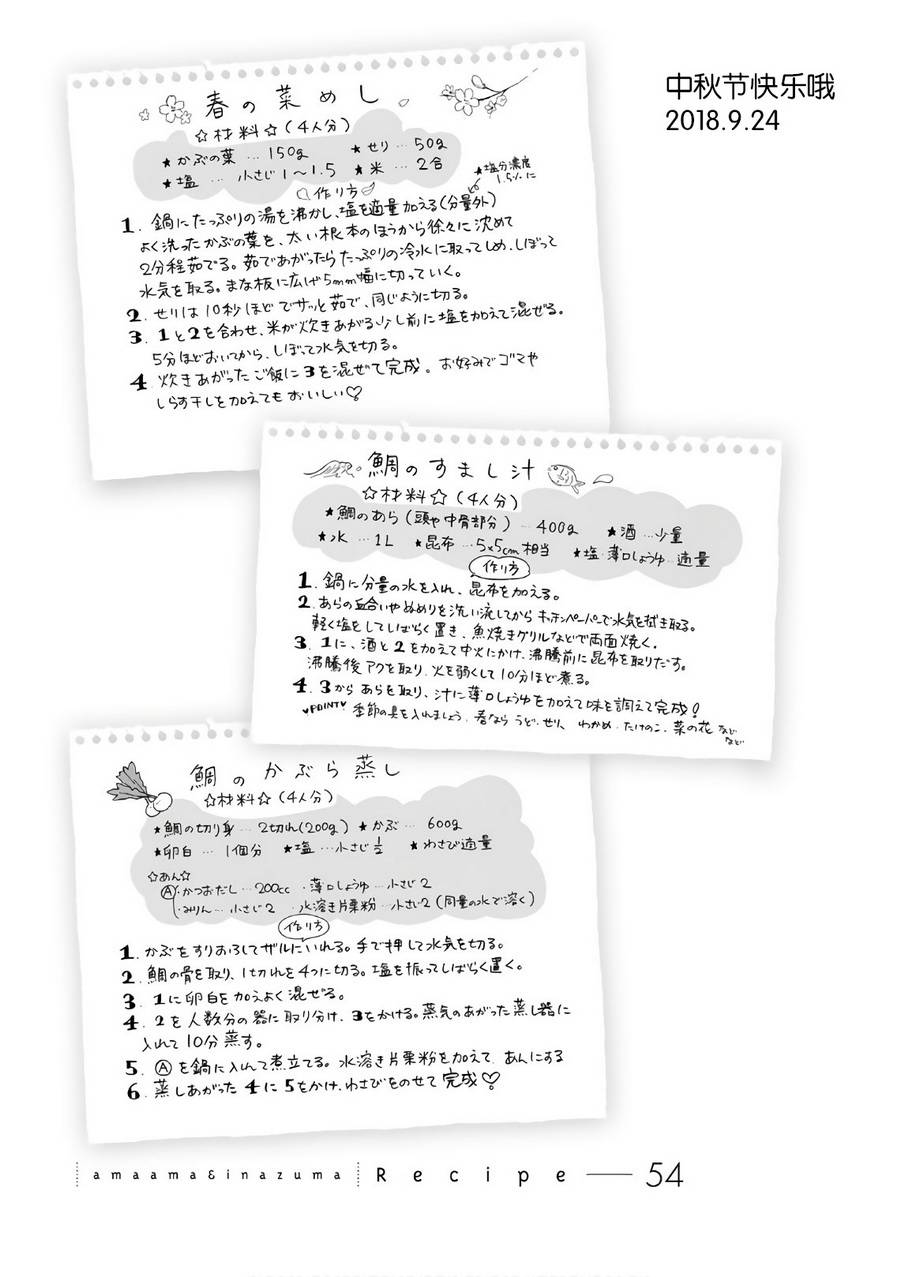 中秋节快乐哦
2018.9.24
春の菜めし
☆材料☆(4人分)
★かぶの葉…150g ★せり…50g
★塩…小さじ1〜1.5 ★米…2合
★塩分濃度
1.5%に
作り方
1. 鍋にたっぷりの湯を沸かし、塩を適量加える(分量外)
よく洗ったかぶの葉を、太い根本のほうから徐々に沈めて
2分程茹でる。茹であがったらたっぷりの冷水に取ってしめ、しぼって
水気を取る。まな板に広げ5mm幅に切っていく。
2. せりは10秒ほどでサッと茹で、同じように切る。
3. 1と2を合わせ、米が炊きあがる少し前に塩を加えて混ぜる。
5分ほどおいてから、しぼって水気を切る。
4 炊きあがったご飯に3を混ぜて完成。お好みでゴマや
しらす干しを加えてもおいしい♡
鯛のすまし汁
☆材料☆(4人分)
★鯛のあら(頭や中骨部分)…400g ★酒…少量
★水…1L ★昆布…5×5cm相当 ★塩・薄口しょうゆ…適量
作り方
1. 鍋に分量の水を入れ、昆布を加える。
2. あらの血合いやぬめりを洗い流してからキッチンペーパーで水気を拭き取る。
軽く塩をしてしばらく置き、魚焼きグリルなどで両面焼く。
3. 1に、酒と2を加えて中火にかけ、沸騰前に昆布を取りだす。
沸騰後アクを取り、火を弱くして10分ほど煮る。
4. 3からあらを取り、汁に薄口しょうゆを加えて味を調えて完成!
♥POINT♥ 季節の具を入れましょう。春なら うど、せり、わかめ、たけのこ、菜の花 など
などに
鯛のかぶら蒸し
☆材料☆(4人分)
★鯛の切り身…2切れ(200g) ★かぶ…600g
★卵白…1個分 ★塩…小さじ1/2 ★わさび適量
☆あん☆
Ⓐ・かつおだし…200cc ・薄口しょうゆ…小さじ2
・みりん…小さじ2 ・水溶き片栗粉…小さじ2(同量の水で溶く)
作り方
1. かぶをすりおろしてザルにいれる。手で押して水気を切る。
2. 鯛の骨を取り、1切れを4つに切る。塩を振ってしばらく置く。
3. 1に卵白を加えよく混ぜる。
4. 2を人数分の器に取り分け、3をかける。蒸気のあがった蒸し器に
入れて10分蒸す。
5. Ⓐを鍋に入れて煮立てる。水溶き片栗粉を加えて、あんにする
6. 蒸しあがった4に5をかけ、わさびをのせて完成♡
amaama&inazuma Recipe 54